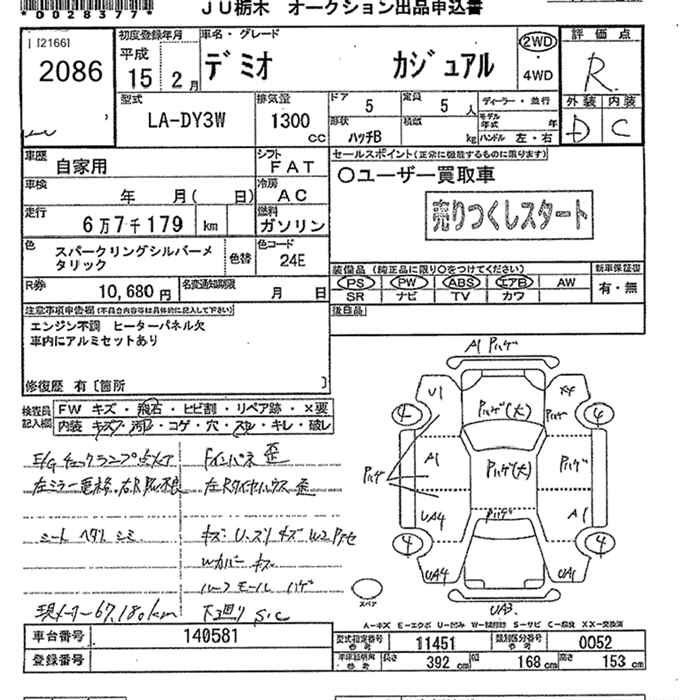 *0028377*
JU栃木 オークション出品申込書
[2166]
2086
初度登録年月
平成
15年 2月
車名・グレード
デミオ カジュアル
2WD
・
4WD
評価点
R
外装 内装
D C
型式
LA-DY3W
排気量
1300
cc
ドア
5
定員
5人
形状
ハッチB
積載
kg
ディーラー・並行
モデル年式 年
ハンドル 左・右
車歴
自家用
シフト
FAT
セールスポイント(正常に機能するものに限ります)
○ユーザー買取車
売りつくしスタート
車検
年 月( 日)
冷房
AC
走行
6万7千179 km
燃料
ガソリン
色
スパークリングシルバーメタリック
色替
色コード
24E
装備品(純正品に限り○をつけてください)
新車保証書
PS PW ABS エアB AW
SR ナビ TV カワ
有・無
R券
10,680円
名変通知期限
月 日
後日品
注意事項申告欄(不具合内容等は具体的に記入して下さい)
エンジン不調 ヒーターパネル欠
車内にアルミセットあり
修復歴 有〔箇所 〕
検査員記入欄
FW キズ・飛石・ヒビ割・リペア跡・×要
内装 キズ・汚れ・コゲ・穴・スレ・キレ・破レ
E/Gチェックランプ点メイ
Fインパネ 歪
左ミラー電格、右R PW不良
左Rタイヤハウス 歪
シート ヘタレ シミ
キズ・U・スリキズ W2 Pアセ
Wカバー キズ
ルーフモール ハゲ
現メーター67,180km
下廻り S.C
A1 Pハゲ
U1
X4
Pハゲ(大)
Pハゲ
4
4
A1
Pハゲ
Pハゲ(大)
Pハゲ
UA4
Pハゲ
A1
4
4
UA4
UA1
スペア
UA3
A-キズ E-エクボ U-凹み W-補修跡 S-サビ C-腐食 XX-交換済
車台番号
140581
登録番号
型式指定番号
参考
11451
類別区分番号
参考
0052
車庫証明用
参考
長さ 392cm 幅 168cm 高さ 153cm